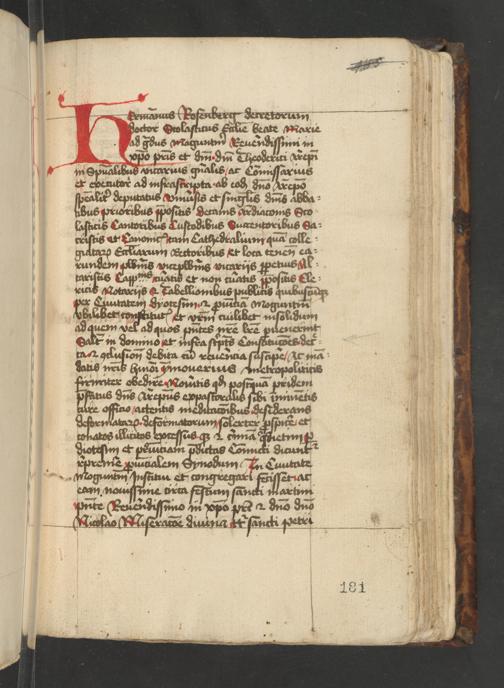 Hermanus Rosenberg decretorum
doctor Scolasticus Ecclie beate Marie
ad gdus maguntin Reverendissimi in
xpo pris et dni dni Theoderici Arepi
in Spirualibus vicarius gnalis ac Comissarius
et executor ad infrascripta ab eod dno Arepo
spealir deputatus vniusis et singlis dnis abba
tibus prioribus ppositis decanis Ardiaconis Sco
lasticis Cantoribus Custodibus Succentoribus Sa
cristis et Canonicis tam Cathedralium qua colle
giatarum Ecclesiarum Rectoribus et loca tenen ea
rundem plbnis viceplbnis vicariis ppetuis Al
taristis Cappnis curatis et non curatis ppositis Cle
ricis Notariis et Tabellionibus publicis quibuscuq
per Civitatem dyocesim et puincia maguntin
vbilibet constitutis et vrm cuilibet insolidum
ad quem vel ad quos pntes nre lre puenerint
Salutem in domino et infrascriptis Constitucoes
debita cu reuerentia suscipe Ac ma
datis nris huiusmodi ymoverius metropoliticis
firmiter obedire Noueritis qd postqua pridem
pfatus dns Arepus expastorali sibi iniuncti
cure officio actentis meditacoibus desiderans
deformatarum deformatorum solerter pspicere et
conatos illicitos excessus
diocesim et puinciam pdictas Comitti dicunt
reprimere puincialem Synodum In Ciuitate
maguntin Institui et congregari fecisset ac
eam nouissime circa festum sancti martini
pnte Reuendissimo in xpo pre et dno dno
Nicolao Miseratoe diuina tt sancti petri
181